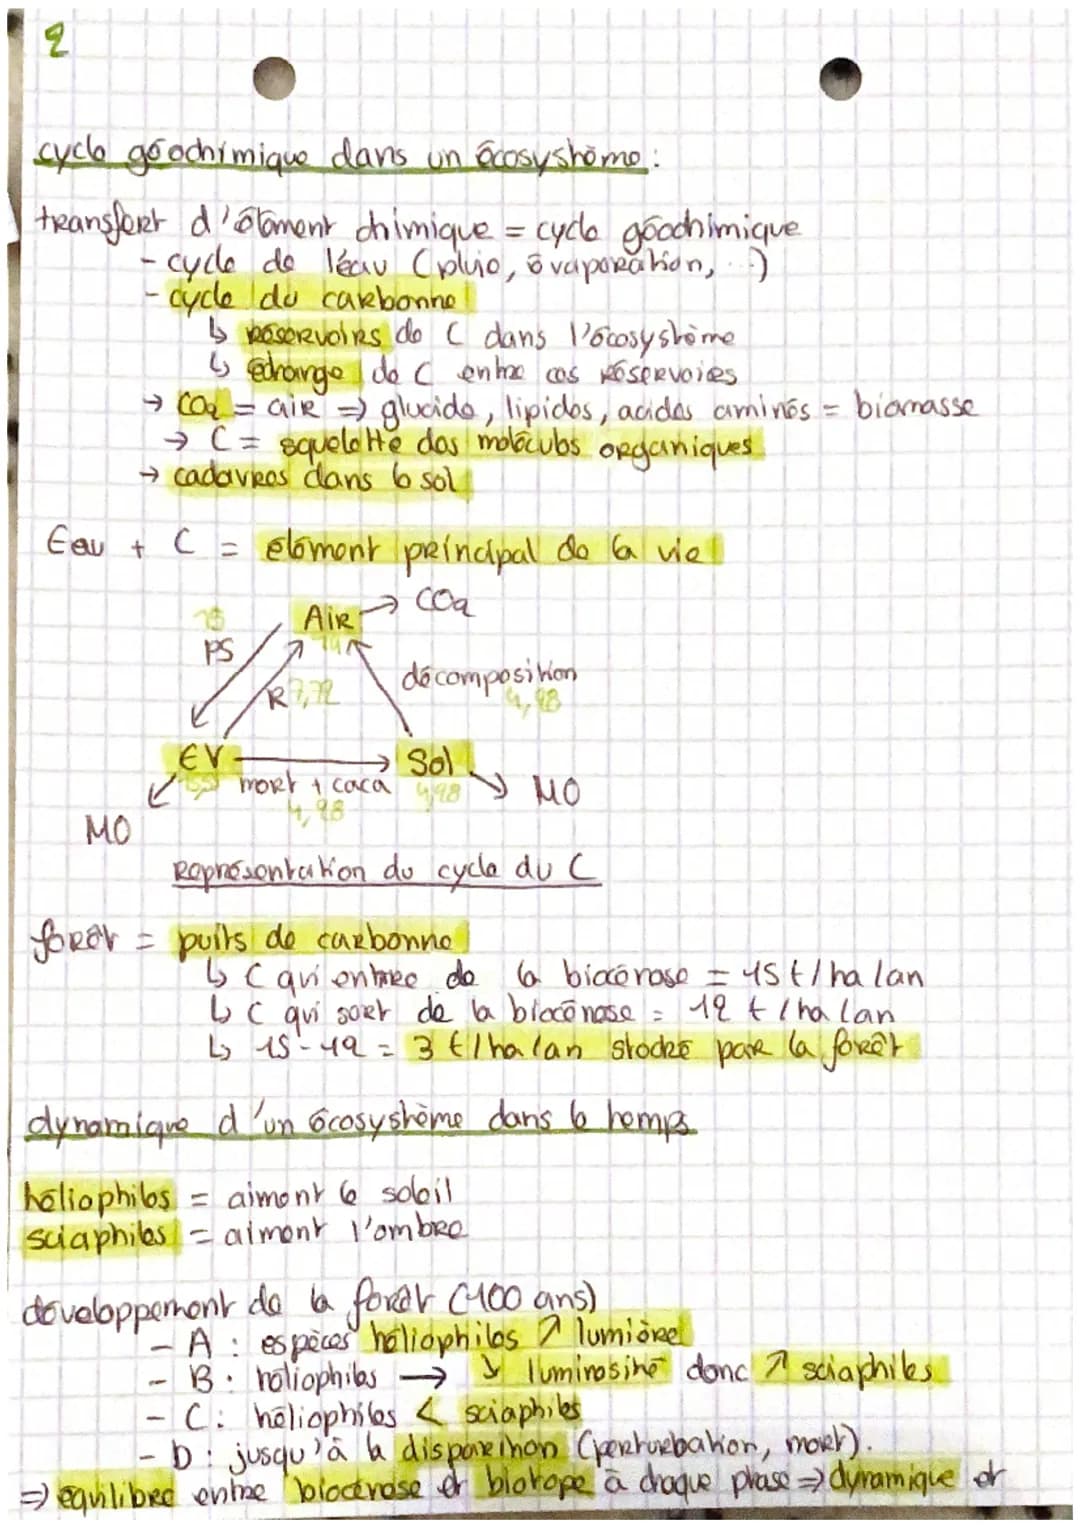 2
cycle géochimique dans un écosystème :
transfert d'élément chimique = cycle géochimique
- cycle de l'éau (pluie, évaporation, ...)
- cycle du carbonne
↳ réservoirs de C dans l'écosystème
↳ échange de C entre ces réservoirs
→ CO2 = air ⇒ glucide, lipides, acides aminés = biomasse
→ C = squelette des molécules organiques
→ cadavres dans le sol
Eau + C = élément principal de la vie
15 Air → CO2
PS 14
R 7,72 décomposition
4,98
EV → Sol
mort + caca 4,98 → MO
4,98
MO
Représentation du cycle du C
forêt = puits de carbonne
↳ C qui entree de la biocénose = 15 t/ha/an
↳ C qui sort de la biocénose = 12 t/ha/an
↳ 15-12 = 3 t/ha/an stocké par la forêt
dynamique d'un écosystème dans le temps
héliophiles = aiment le soleil
sciaphiles = aiment l'ombre
développement de la forêt (100 ans)
- A : espèces héliophiles ↗ lumière
- B : héliophiles → ↘ luminosité donc ↗ sciaphiles
- C : héliophiles < sciaphiles
- D : jusqu'à la disparition (perturbation, mort).
⇒ équilibre entre biocénose et biotope à chaque phase ⇒ dynamique et